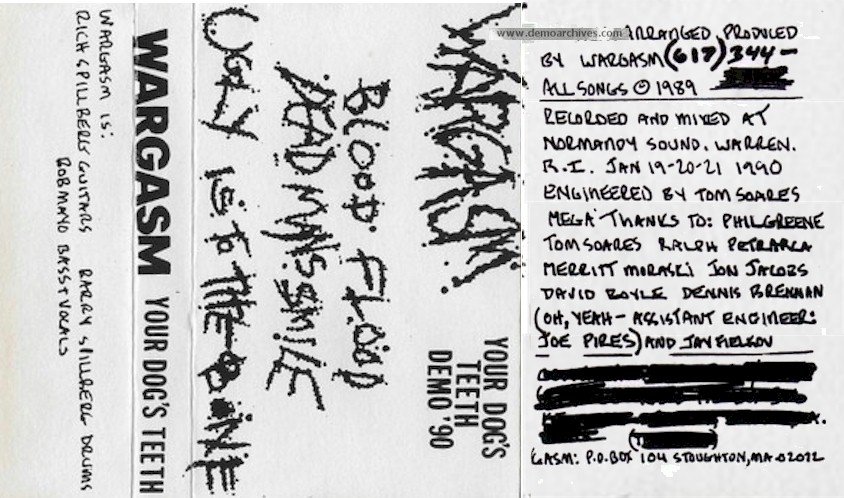 WARGASM
YOUR DOG'S
TEETH
DEMO '90
BLOOD FLOOD
DEAD MANS SMILE
UGLY IS TO THE BONE
WARGASM YOUR DOG'S TEETH
WARGASM IS:
RICH SPILLBERG GUITARS BARRY SPILLBERG DRUMS
BOB MAYO BASS+VOCALS
www.demoarchives.com
ARRANGED, PRODUCED
BY WARGASM (617) 344-
ALL SONGS © 1989
RECORDED AND MIXED AT
NORMANDY SOUND. WARREN.
R.I. JAN 19-20-21 1990
ENGINEERED BY TOM SOARES
MEGA THANKS TO: PHIL GREENE
TOM SOARES RALPH PETRARCA
MERRITT MORASKI JON JACOBS
DAVID BOYLE DENNIS BRENNAN
(OH, YEAH - ASSISTANT ENGINEER:
JOE PIRES) AND JAY FIELKOV
GASM: P.O. BOX 104 STOUGHTON, MA. 02072